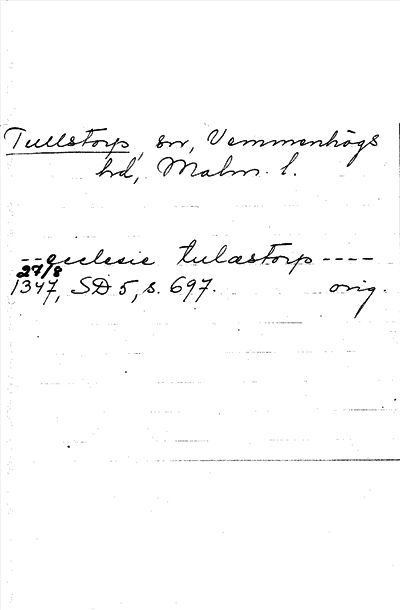 Tullstorp, sn, Vemmenhögs
hd, Malm. l.
--ecclesie tulæstorp ----
27/8
1347, SD 5, s. 697. orig.